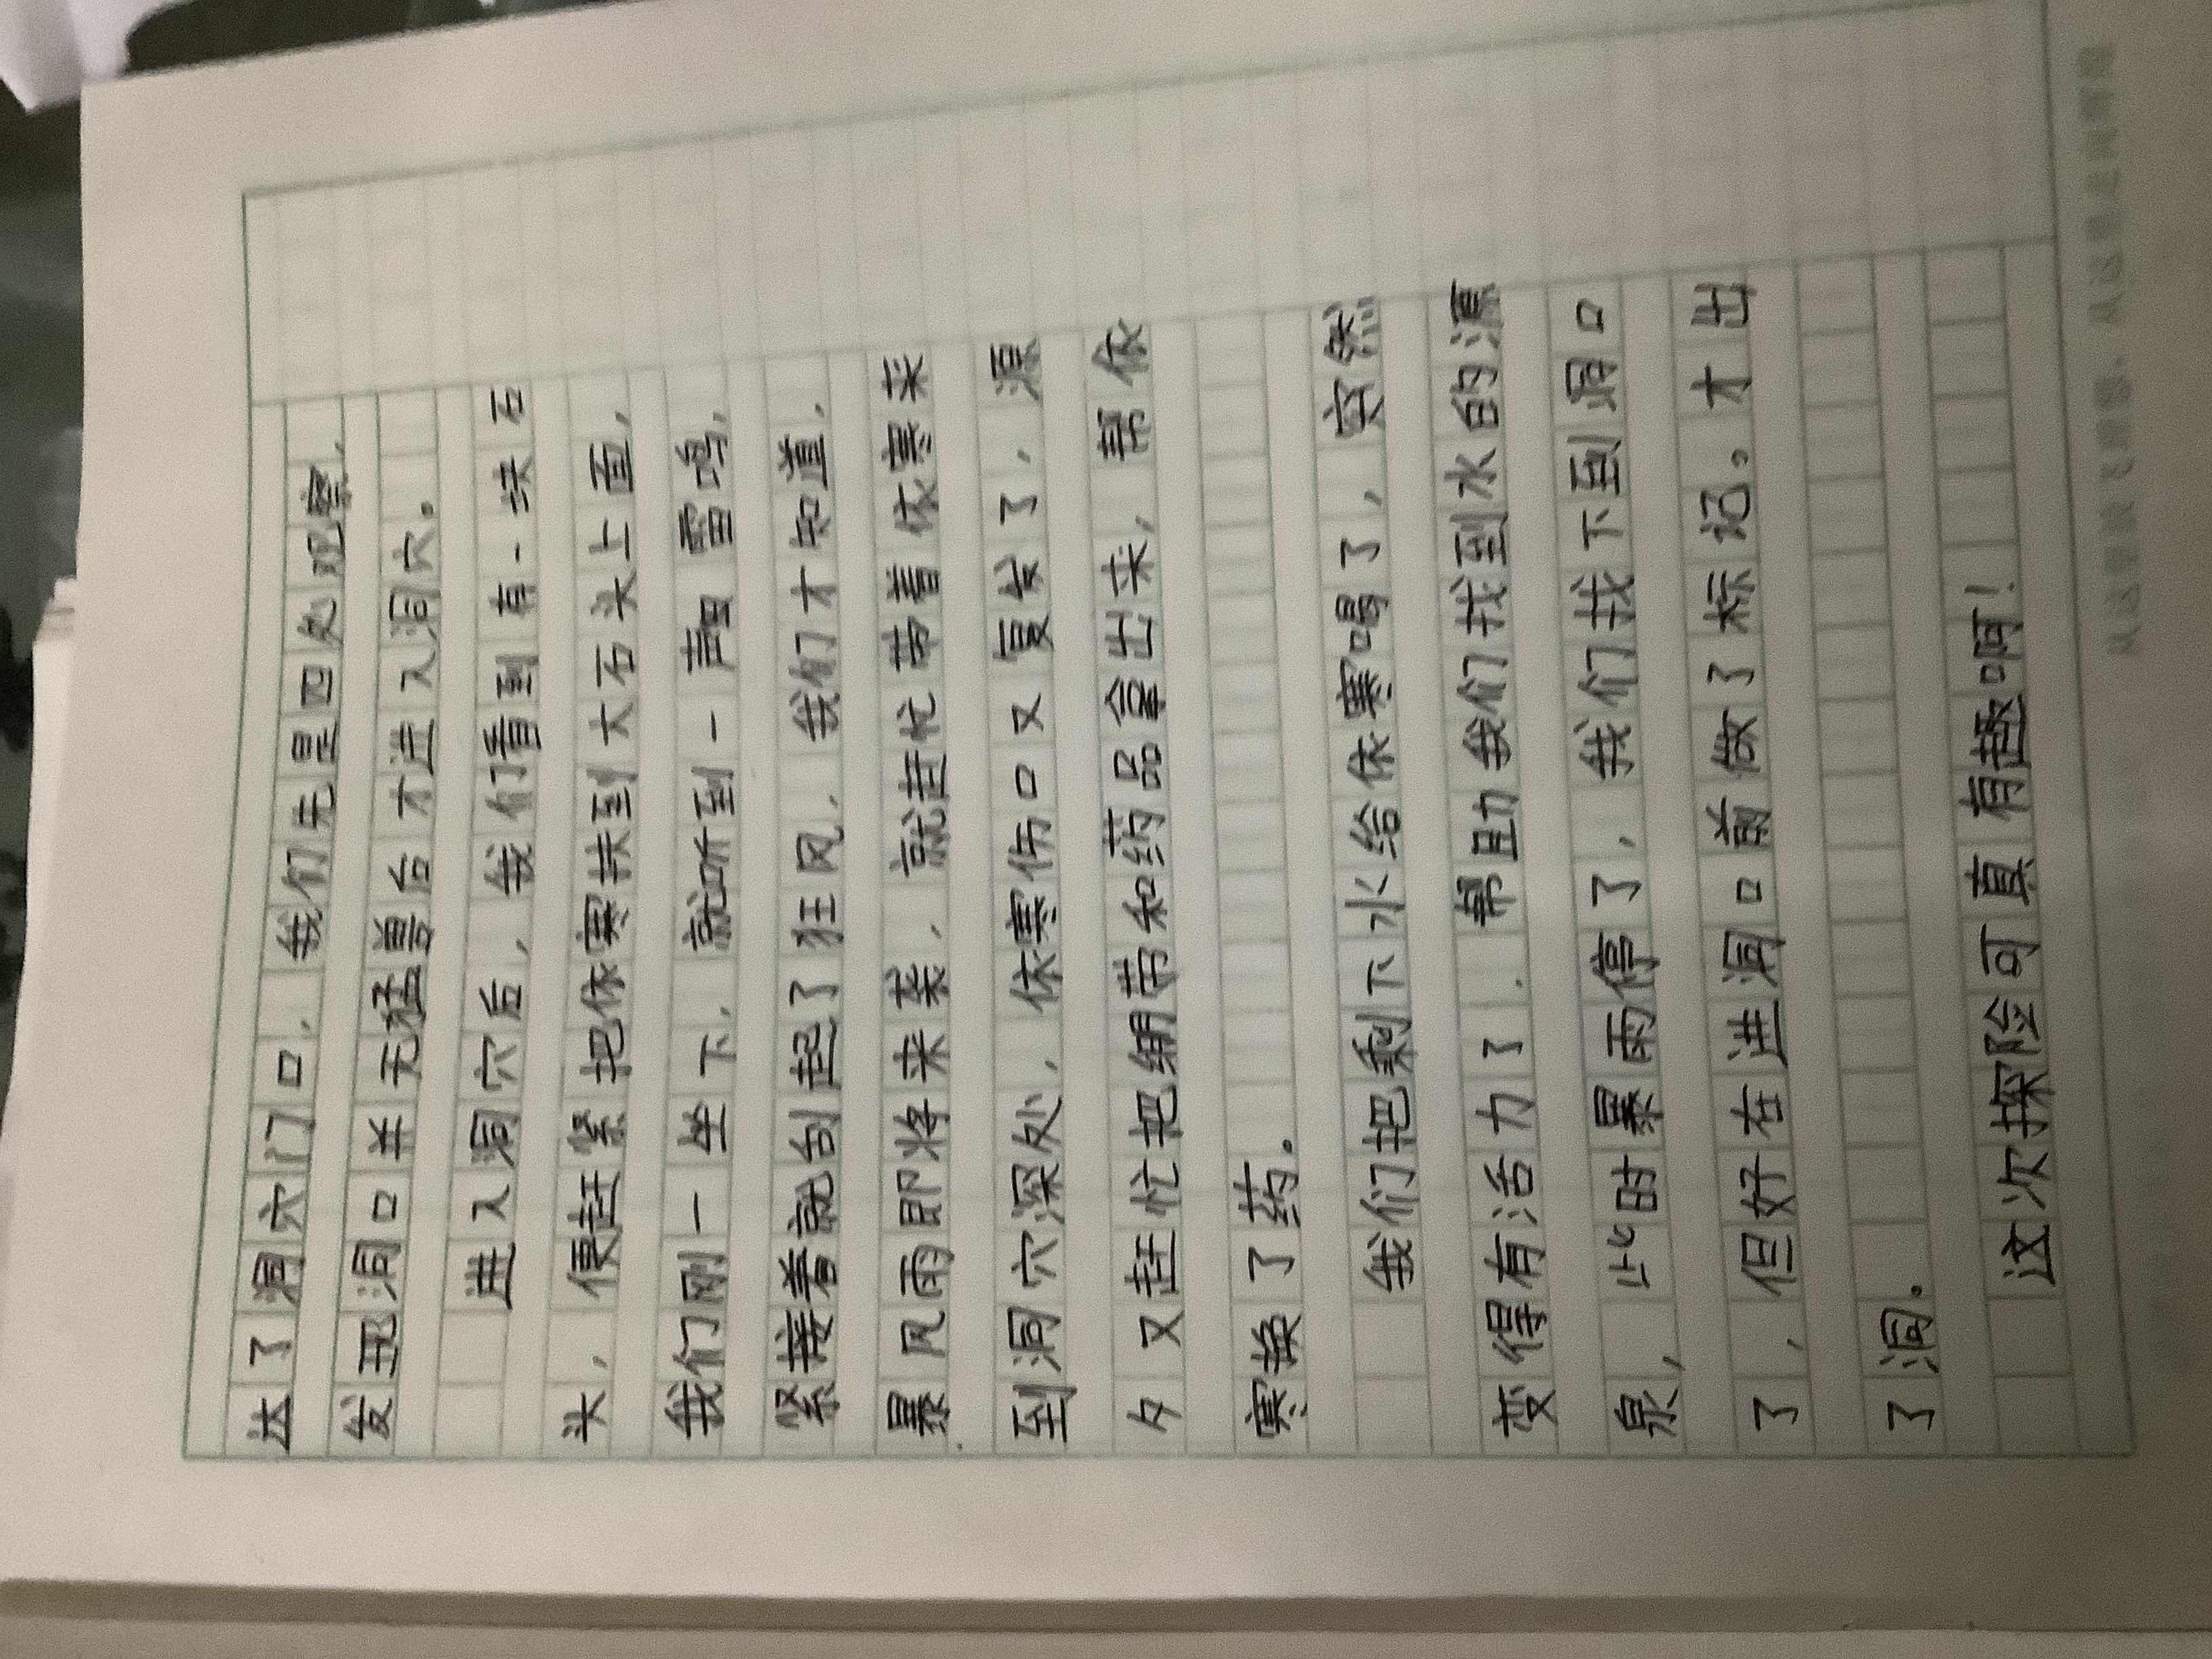 达了洞穴门口，我们先是四处观察，
发现洞口并无猛兽后才进入洞穴。
进入洞穴后，我们看到有一块石
头，便赶紧把依寒扶到大石头上面，
我们刚一坐下，就听到一声雷鸣，
紧接着就刮起了狂风，我们才知道，
暴风雨即将来袭，就赶忙带着依寒来
到洞穴深处，依寒伤口又复发了，源
夕又赶忙把绷带和药品拿出来，帮依
寒换了药。
我们把剩下水给依寒喝了，突然
变得有活力了．帮助我们找到水的源
泉，此时暴雨停了，我们找下到洞口
了，但好在进洞口前做了标记。才出
了洞。
这次探险可真有趣啊！